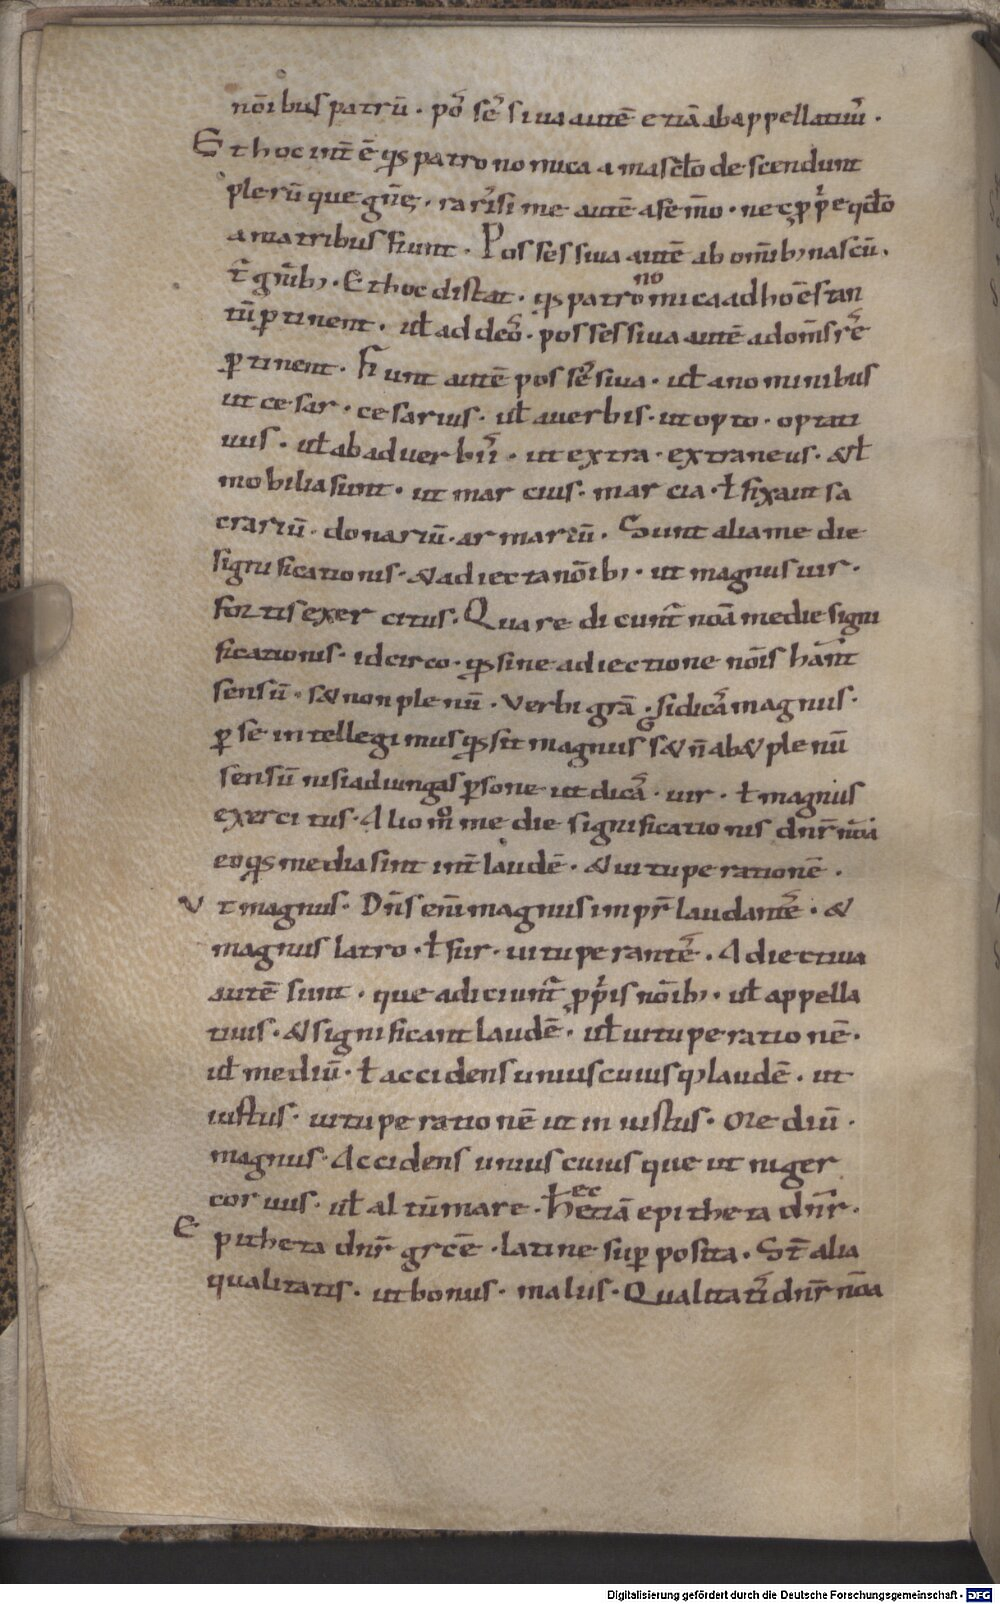 nōibus patrū · poſ̄ ſeſ̄ ſiua autē etiā ab appellatiuiſ ·
Et hoc int̄ ē qs patronomica a maſcło deſcendunt
plerūque gn̄e · rariſſime autē a fem̄o · nec ꝓp̄e qdło
a matribus fiunt · Poſſeſſiua autē ab om̄ibꝫ naſcū.
t̄ gn̄ibꝫ · Et hoc diſtat · qs patronomica ad hoēſ tan
no
tū ꝑtinent · uł ad deoſ · poſſeſſiua autē ad om̄ſ reſ
ꝑtinent · Fiunt autē poſſeſſiua · uł a nominibus
ut ceſar · ceſarius · uł a uerbis · ut opto · optati
uus · uł ab aduerbiiſ · ut extra · extraneus · & uł
mobilia ſunt · ut marcius · marcia · ł fixa ut ſa
crariū · donariū · armariū · Sunt alia medie
ſignificationis · & adiecta nōibꝫ · ut magnus uir ·
fortis exercitus · Quare dicunt̄ noā medie ſigni
ficationis · idcirco · qs ſine adiectione nōis hānt
ſenſū · ſ& non plenū · Verbi grā · ſi dicā magnus ·
ꝑ ſe intellegimus qs ſit magnus ſ& n̄ hab& plenū
ſenſū niſi adiungaſ ꝑſone ut dicā · uir · ł magnus
exercitus · Alio m̊ medie ſignificationis dn̄r noā
eo qs media ſint int̄ laudē · & uituperationē ·
Vt magnus · Dn̄s eni magnus impr̄ laudanteſ · &
magnus latro · ł fur · uituperanteſ · Adiectiua
autē ſunt · que adiciunt̄ ꝓpis nōibꝫ · uł appella
tiuis · & ſignificant laudē · uł uituperationē ·
uł mediū · ł accidens uniuſcuiusqꝫ laudē · ut
iuſtus · uituperationē ut iniuſtus · Mediū ·
magnus · Accidens uniuſcuiuſque ut niger
coruus · uł altū mare · Hec etiā epitheta dn̄r ·
Epitheta dn̄r grēce · latine ſup poſita · St̄ alia
qualitatis · ut bonus · malus · Qualitatiſ dn̄r noā
Digitalisierung gefördert durch die Deutsche Forschungsgemeinschaft · DFG